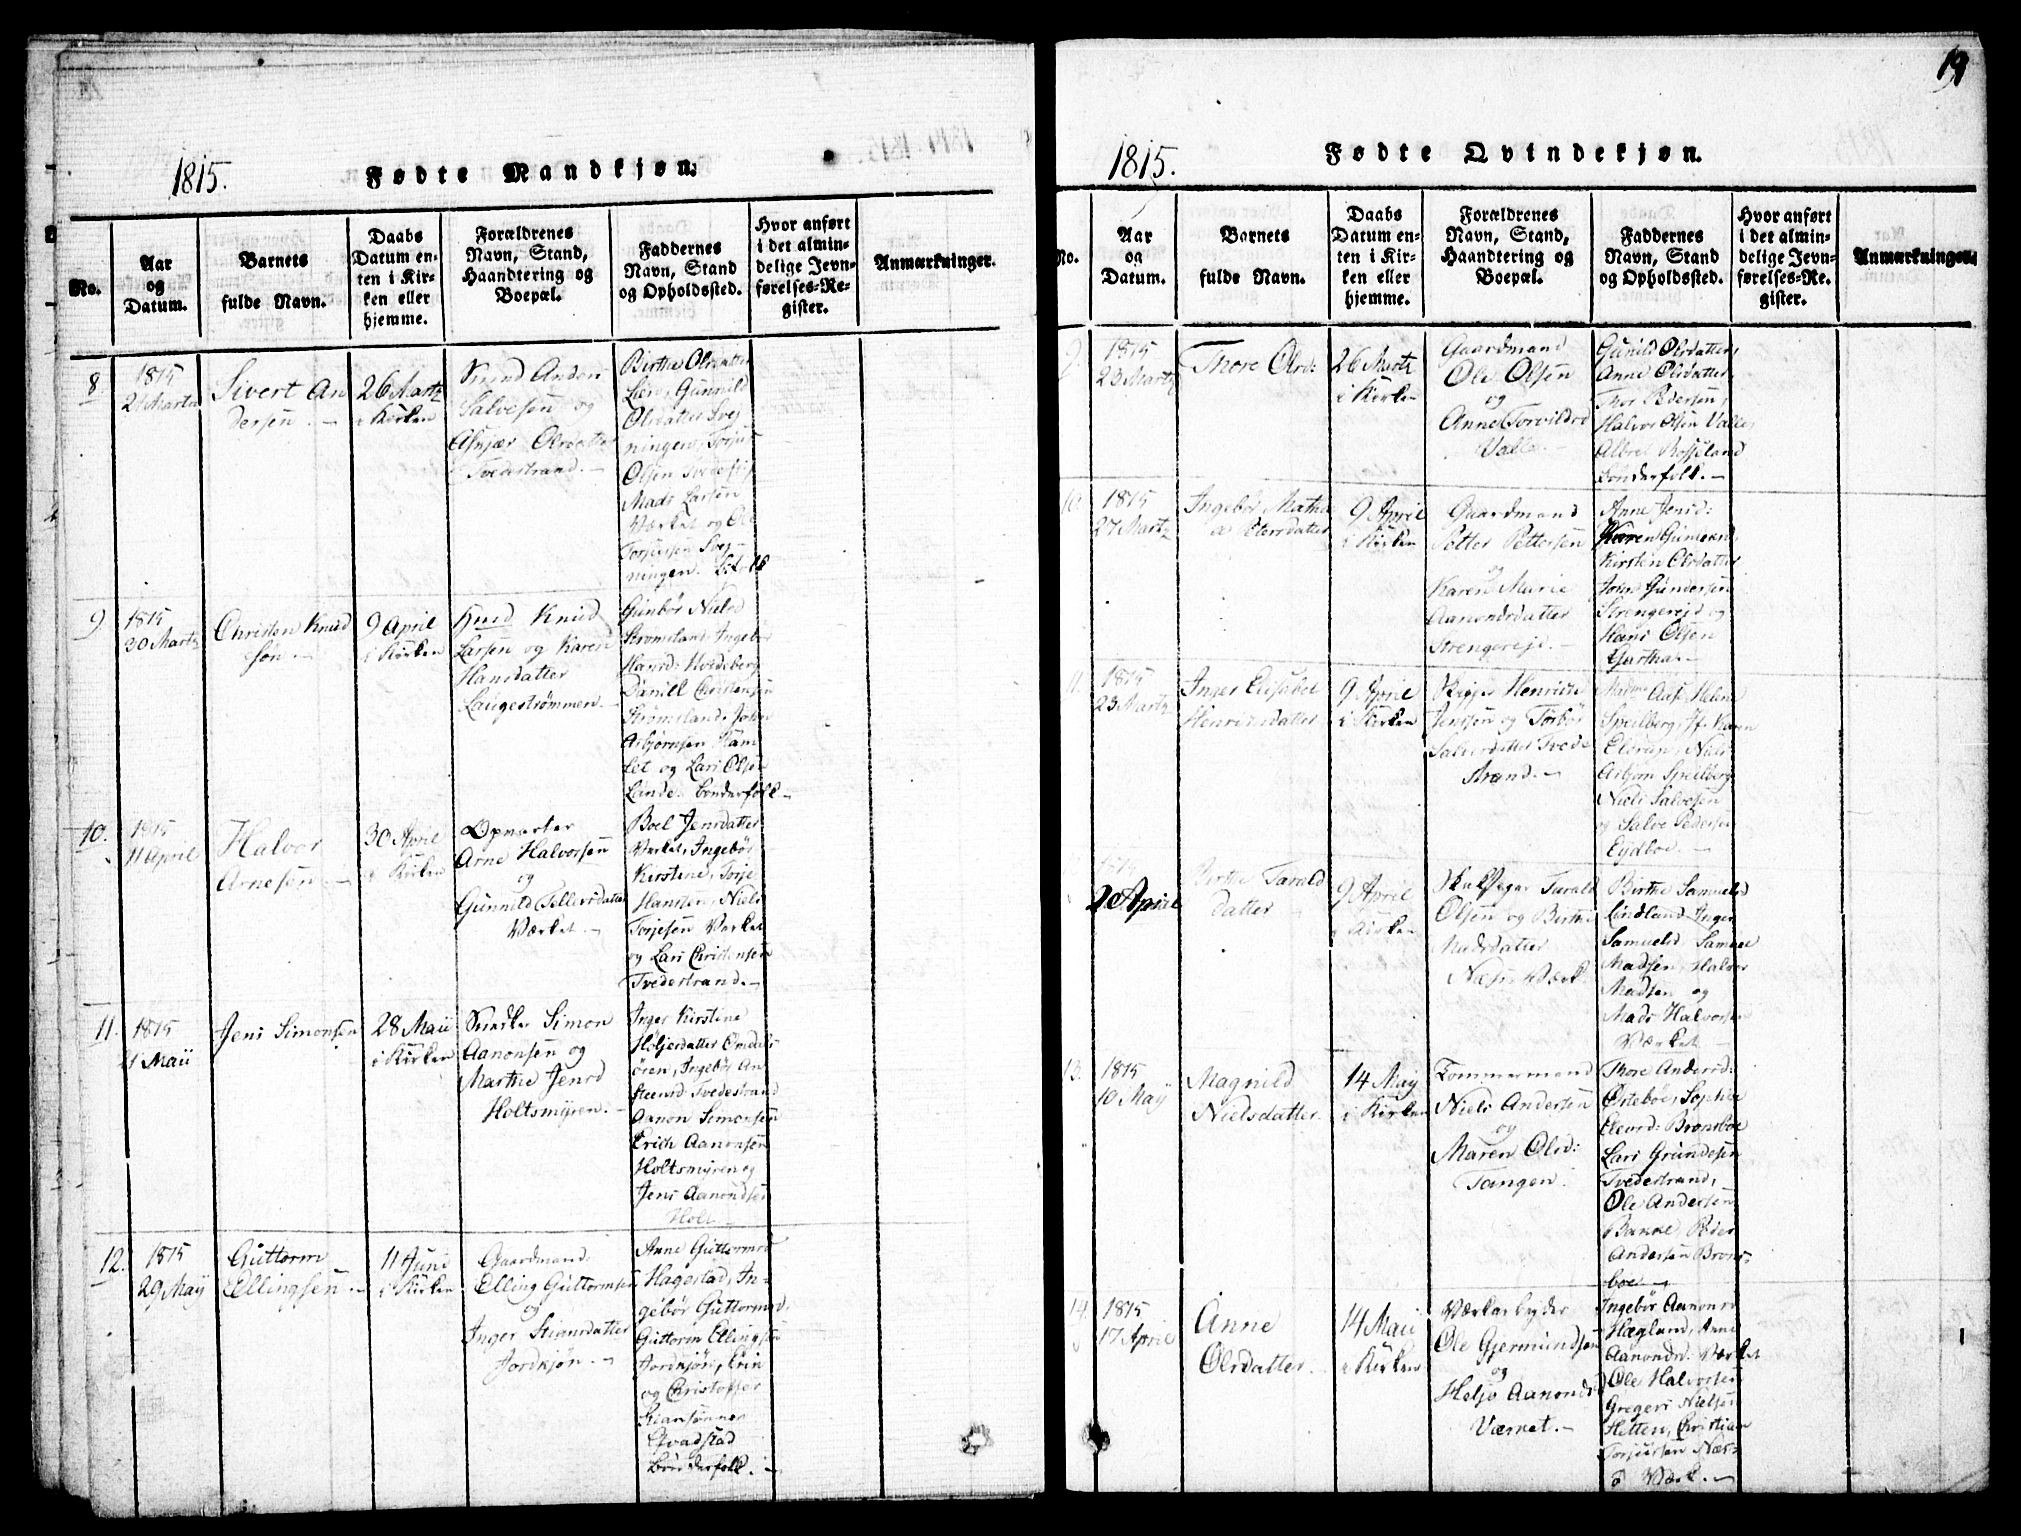 19
1815.
Fødte Mandkjøn.
No.
Aar
og
Datum.
Barnets
fulde Navn.
Daabs
Datum en-
ten i Kir-
ken eller
hjemme.
Forældrenes
Navn, Stand,
Haandtering og
Boepæl.
Faddernes
Navn, Stand
og Opholdssted.
Hvor anført
i det almin-
delige Jevn-
førelses-Re-
gister.
Anmærkninger.
8
1815
Martz
Sivert An
dersen.
26 Martz
i Kirken
Smed Anders
Salvesen og
Olsdatter
Tvedestrand.
Birthe Olsdatter
Lien, Gunnild
Olsdatter Svej
ningen, Torju
Olsen
Mads Larsen
Værket og Ole
Torjusen Svej
ningen.
9.
1815
30 Martz
Christen Knud
søn.
9 April
i Kirken
Knud
Larsen og Karen
Hansdatter
Laugestrømmen.
Gunbør Niels
Strømsland Ingebør
Hansd: Hvideberg
Daniell Christensen
Strømsland, John
Asbjørnsen
let og Lars Olsen
Lande. bønderfolk
10.
1815
11 April
Halvor
Arnesen.
30 April
i Kirken
Opvarter
Arne Halvorsen
og
Gunnild Tellevsdatter
Værket.
Boel Jensdatter
Værket, Ingebør
Kirstine, Torje
Hansen, Niels
Torjesen Værket
og Lars Christensen
Tvedestrand.
11.
1815
1 Maii
Jens Simonsen
28 Maii
i Kirken
Snedker Simon
Aanonsen og
Marthe Jensd
Holtsmyren.
Inger Kirstine
Holjersdatter Omdals
øren, Ingebør An
steensd Tvedestrand
Aanon Simonsen
Erich Aanonsen
Holtsmyren og
Jens Aanondsen
Holt
12.
1815
29 May
Guttorm
Ellingsen.
11 Juni
i Kirken
Gaardmand
Elling Guttormsen
og
Inger Stiansdatter
Jordkjøn.
Anne Guttormsd
Hagestad, In-
gebør Guttormsd,
Guttorm Ellingsen
Jordkjøn,
og Christoffer
Stiansønner
Qvadstad
Bønderfolk.
1815.
Fødte Qvindekjøn.
No.
Aar
og
Datum.
Barnets
fulde Navn.
Daabs
Datum en-
ten i Kir-
ken eller
hjemme.
Forældrenes
Navn, Stand,
Haandtering og
Boepæl.
Faddernes
Navn, Stand
og Opholdssted.
Hvor anført
i det almin-
delige Jevn-
førelses-Re-
gister.
Anmærkninger.
9
1815
23 Martz
Thore Olsd:
26 Martz
i Kirken
Gaardmand
Ole Olsen
og
Anne Torvildsd
Valle.
Gunild Olsdatter,
Anne Olsdatter,
Thor Pedersen,
Halvor Olsen Valle,
Rosseland
bønderfolk.
10.
1815
27 Martz
Ingebør Mathe
a Petersdatter
9 April
i Kirken
Gaardmand
Petter Pettersen
og
Karen Marie
Aanonsdatter
Strengereje.
Anne Jensd:
Karen
Kirsten Olsdatter
Gundersen
Strengerejd og
Hans Olsen
Gartha.
11.
1815
23 Martz
Inger Elisabet
Henrichsdatter
9 April
i Kirken
Henrich
Jensen og Torbør
Salvesdatter Tvede
strand.
Madme Aase Helene
Speilberg, Jfr. Karen
Elstrup, Niels
Asbjørn Speilberg
Niels Salvesen
og Salve Pedersen
Eydboe.
1815
2 April
Birthe Tarald
datter
9 April
i Kirken
Tarald
Olsen og Birthe
Madsdatter
Næs Værk.
Birthe Samuelsd
Lindland, Inger
Samuelsd, Samuel
Madsen, Halvor
Madsen og
Mads Halvorsen
Værket
13.
1815
10 May
Magnild
Nielsdatter.
14 May
i Kirken
Tømmermand
Niels Andersen
og
Maren Olsd:
Tangen.
Thore Andersd:
Østebøe, Sophie
Olensd: Bronsboe
Lars Grundesen
Tvedestrand,
Ole Andersen
Bakke, Peder
Andersen Brons-
boe
14.
1815
17 April
Anne
Olsdatter.
14 Maii
i Kirken
Værkarbejder
Ole Gjermundsen
og
Helje Aanonsd
Værket.
Ingebør Aanonsd
Hægland, Anne
Aanondsd. Værket
Ole Halvorsen
Gregers Nielsen
Hetten, Christian
Torjusen Næs-
Værk.